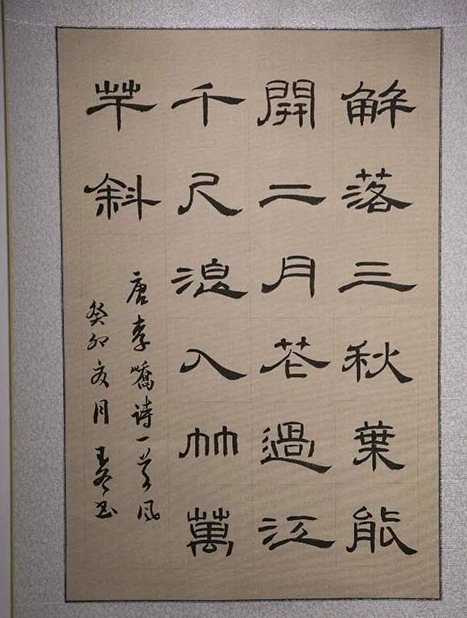 解落三秋葉能
開二月花過江
千尺浪入竹萬
竿斜
唐李嶠诗一首风
癸卯亥月